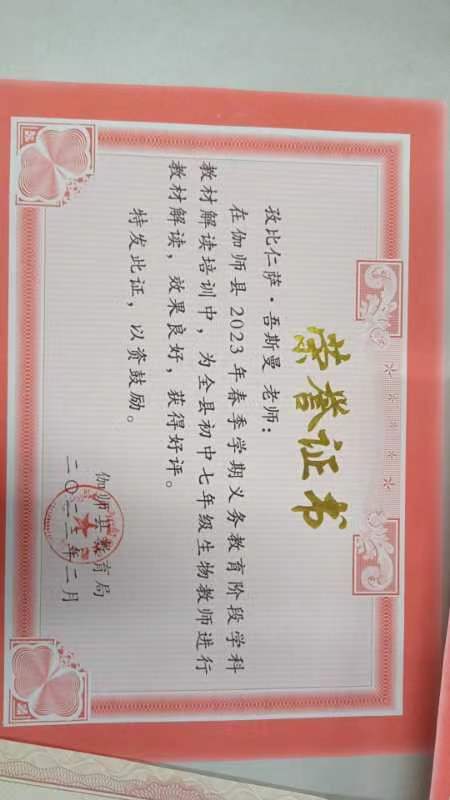 荣誉证书
孜比仁萨·吾斯曼 老师：
在伽师县2023年春季学期义务教育阶段学科
教材解读培训中，为全县初中七年级生物教师进行
教材解读，效果良好，获得好评。
特发此证，以资鼓励。
伽师县教育局
二〇二三年二月